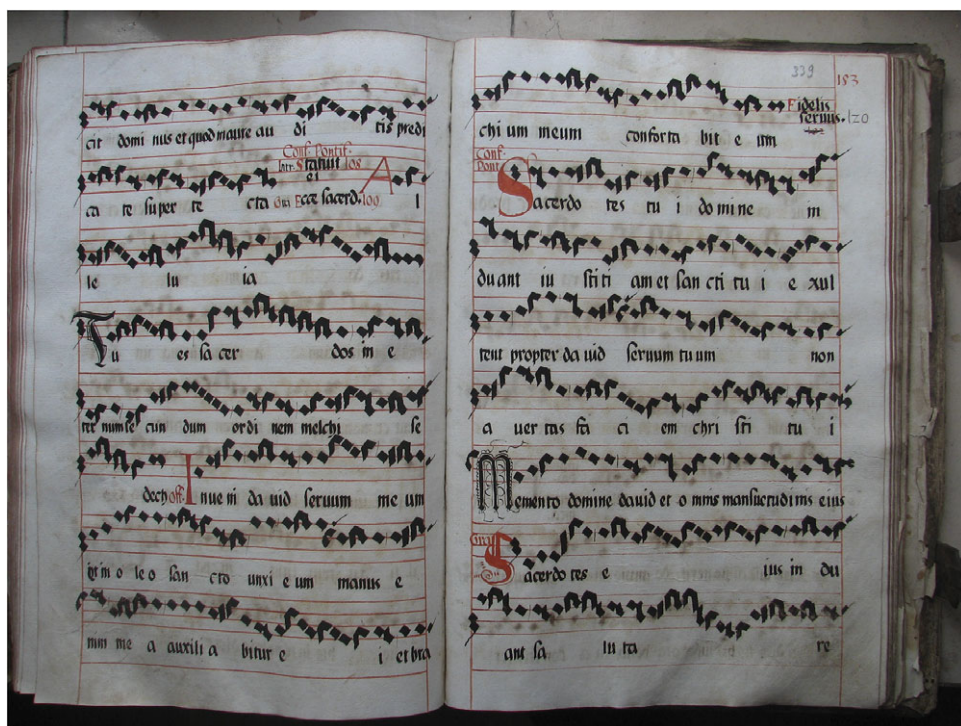 cit domi nus et quod in aure au di tis predi
Conf. Pontif.
Statuit 108
ei
ca te super te cta Gra Ecce sacerd. 100 A l
le lu ia
Tu es sa cer dos in e
ter num se cun dum ordi nem melchi se
dech off. Inue ni da uid seruum me um
in o le o san cto unxi e um manus e
nim me a auxili a bitur e i et bra
339
153
Fidelis
seruus. 120
chi um meum conforta bit e um
Conf.
Pont.
Sacerdo tes tu i do mine in
du ant iu sti ti am et san cti tu i e xul
tent propter da uid seruum tu um non
a uer tas fa ci em chri sti tu i
Memento domine dauid et o mnis mansuetudinis eius
Gra.
Sacerdo tes e ius in du
ant sa lu ta re